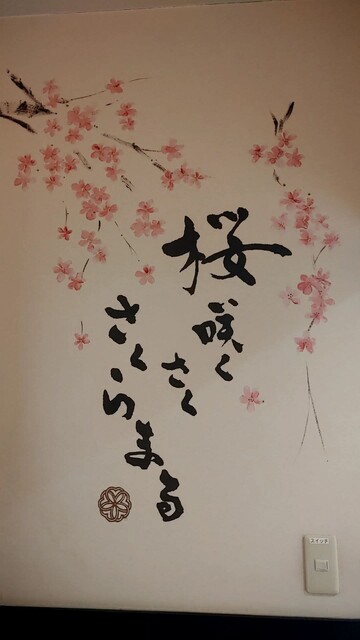 桜咲く
さく
さくらまる
スイッチ